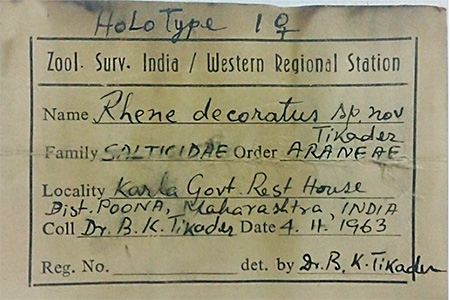 HoLoType 1 ♀
Zool. Surv. India / Western Regional Station
Name Rhene decoratus sp. nov
Tikader
Family SALTICIDAE Order ARANEAE
Locality Karla Govt. Rest House
Dist. POONA, Maharashtra, INDIA
Coll Dr. B. K. Tikader Date 4. 11. 1963
Reg. No. det. by Dr. B. K. Tikader